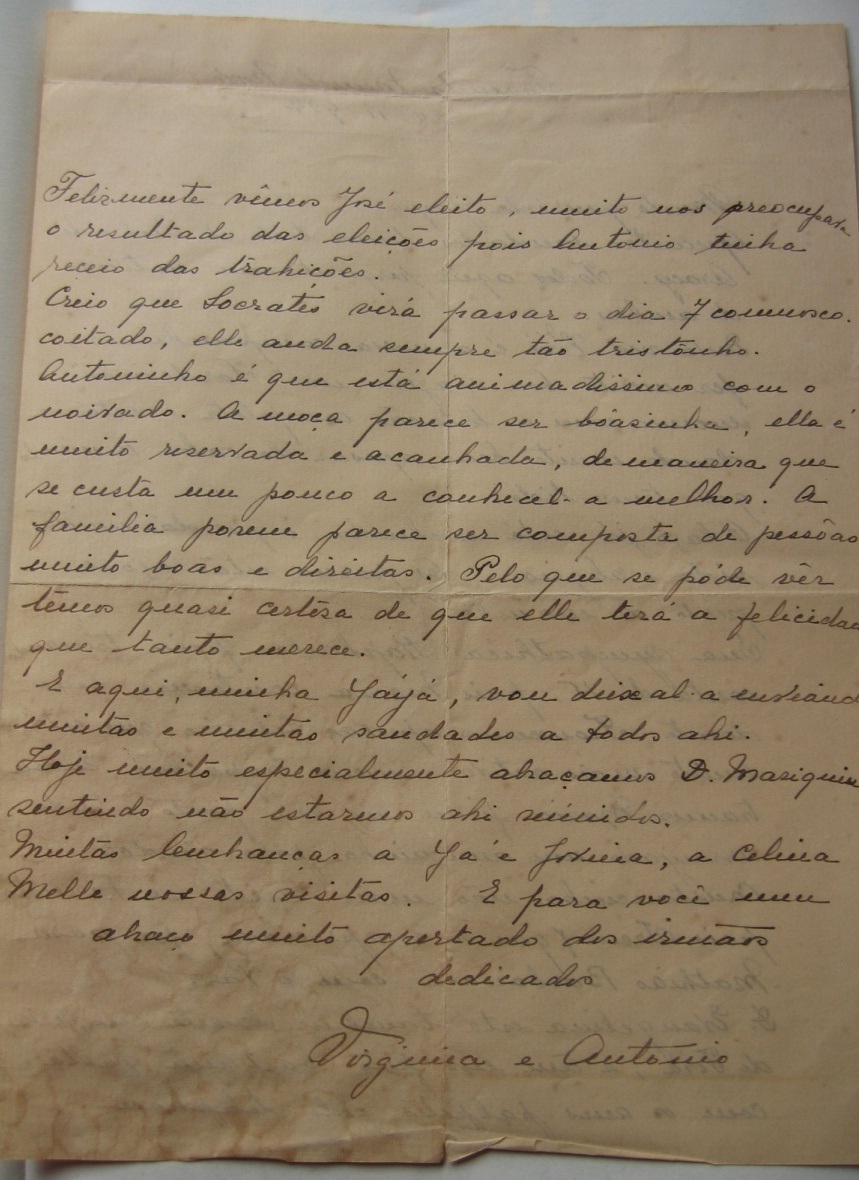 Felizmente vimos José eleito, muito nos preocupava
o resultado das eleições pois Antonio tinha
receio das trahições.
Creio que Socratès virá passar o dia 7 comnosco.
coitado, elle anda sempre tão tristônho.
Antoninho é que está animadissimo com o
noivado. A moça parece ser bôasinha, ella é
muito reservada e acanhada, de maneira que
se custa um pouco a conhecel-a melhor. A
familia porem parece ser composta de pessôas
muito boas e direitas. Pelo que se póde vêr
têmos quasi certêsa de que elle terá a felicidade
que tanto merece.
E aqui, minha Yáyá, vou deixal-a enviando
muitas e muitas saudades a todos ahi.
Hoje muito especialmente abraçamos D. Mariquin
sentindo não estarmos ahi reúnidos.
Muitas lembranças a Yá e Jovina, a Celina
Melle nossas visitas. E para você um
abraço muito apertado dos irmãos
dedicados
Virginia e Antonio